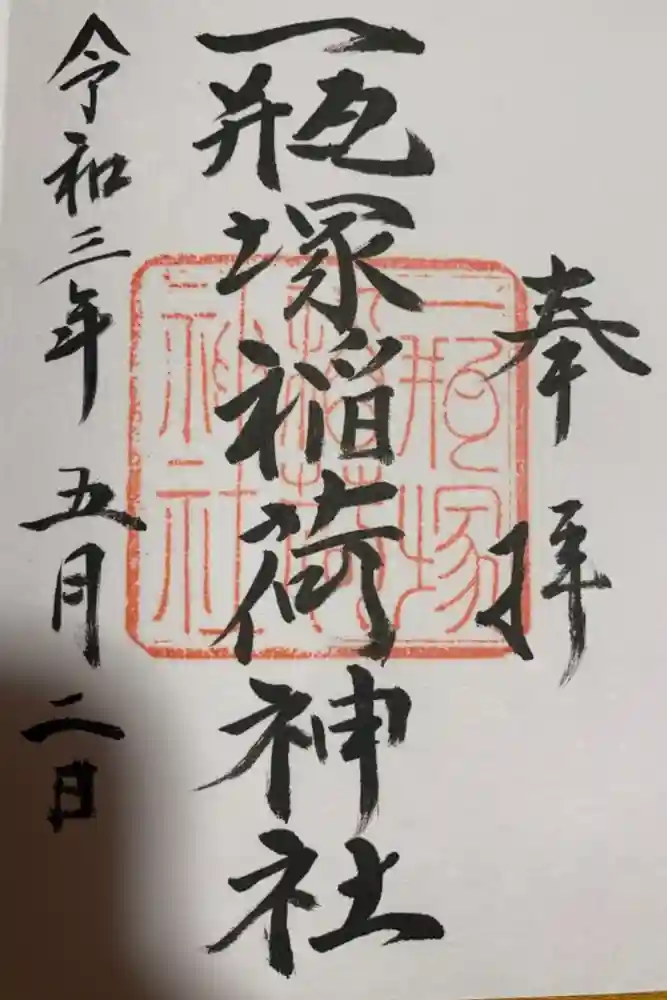 奉拝
一瓶塚稲荷神社
一瓶塚
稲荷
神社
令和三年五月二日